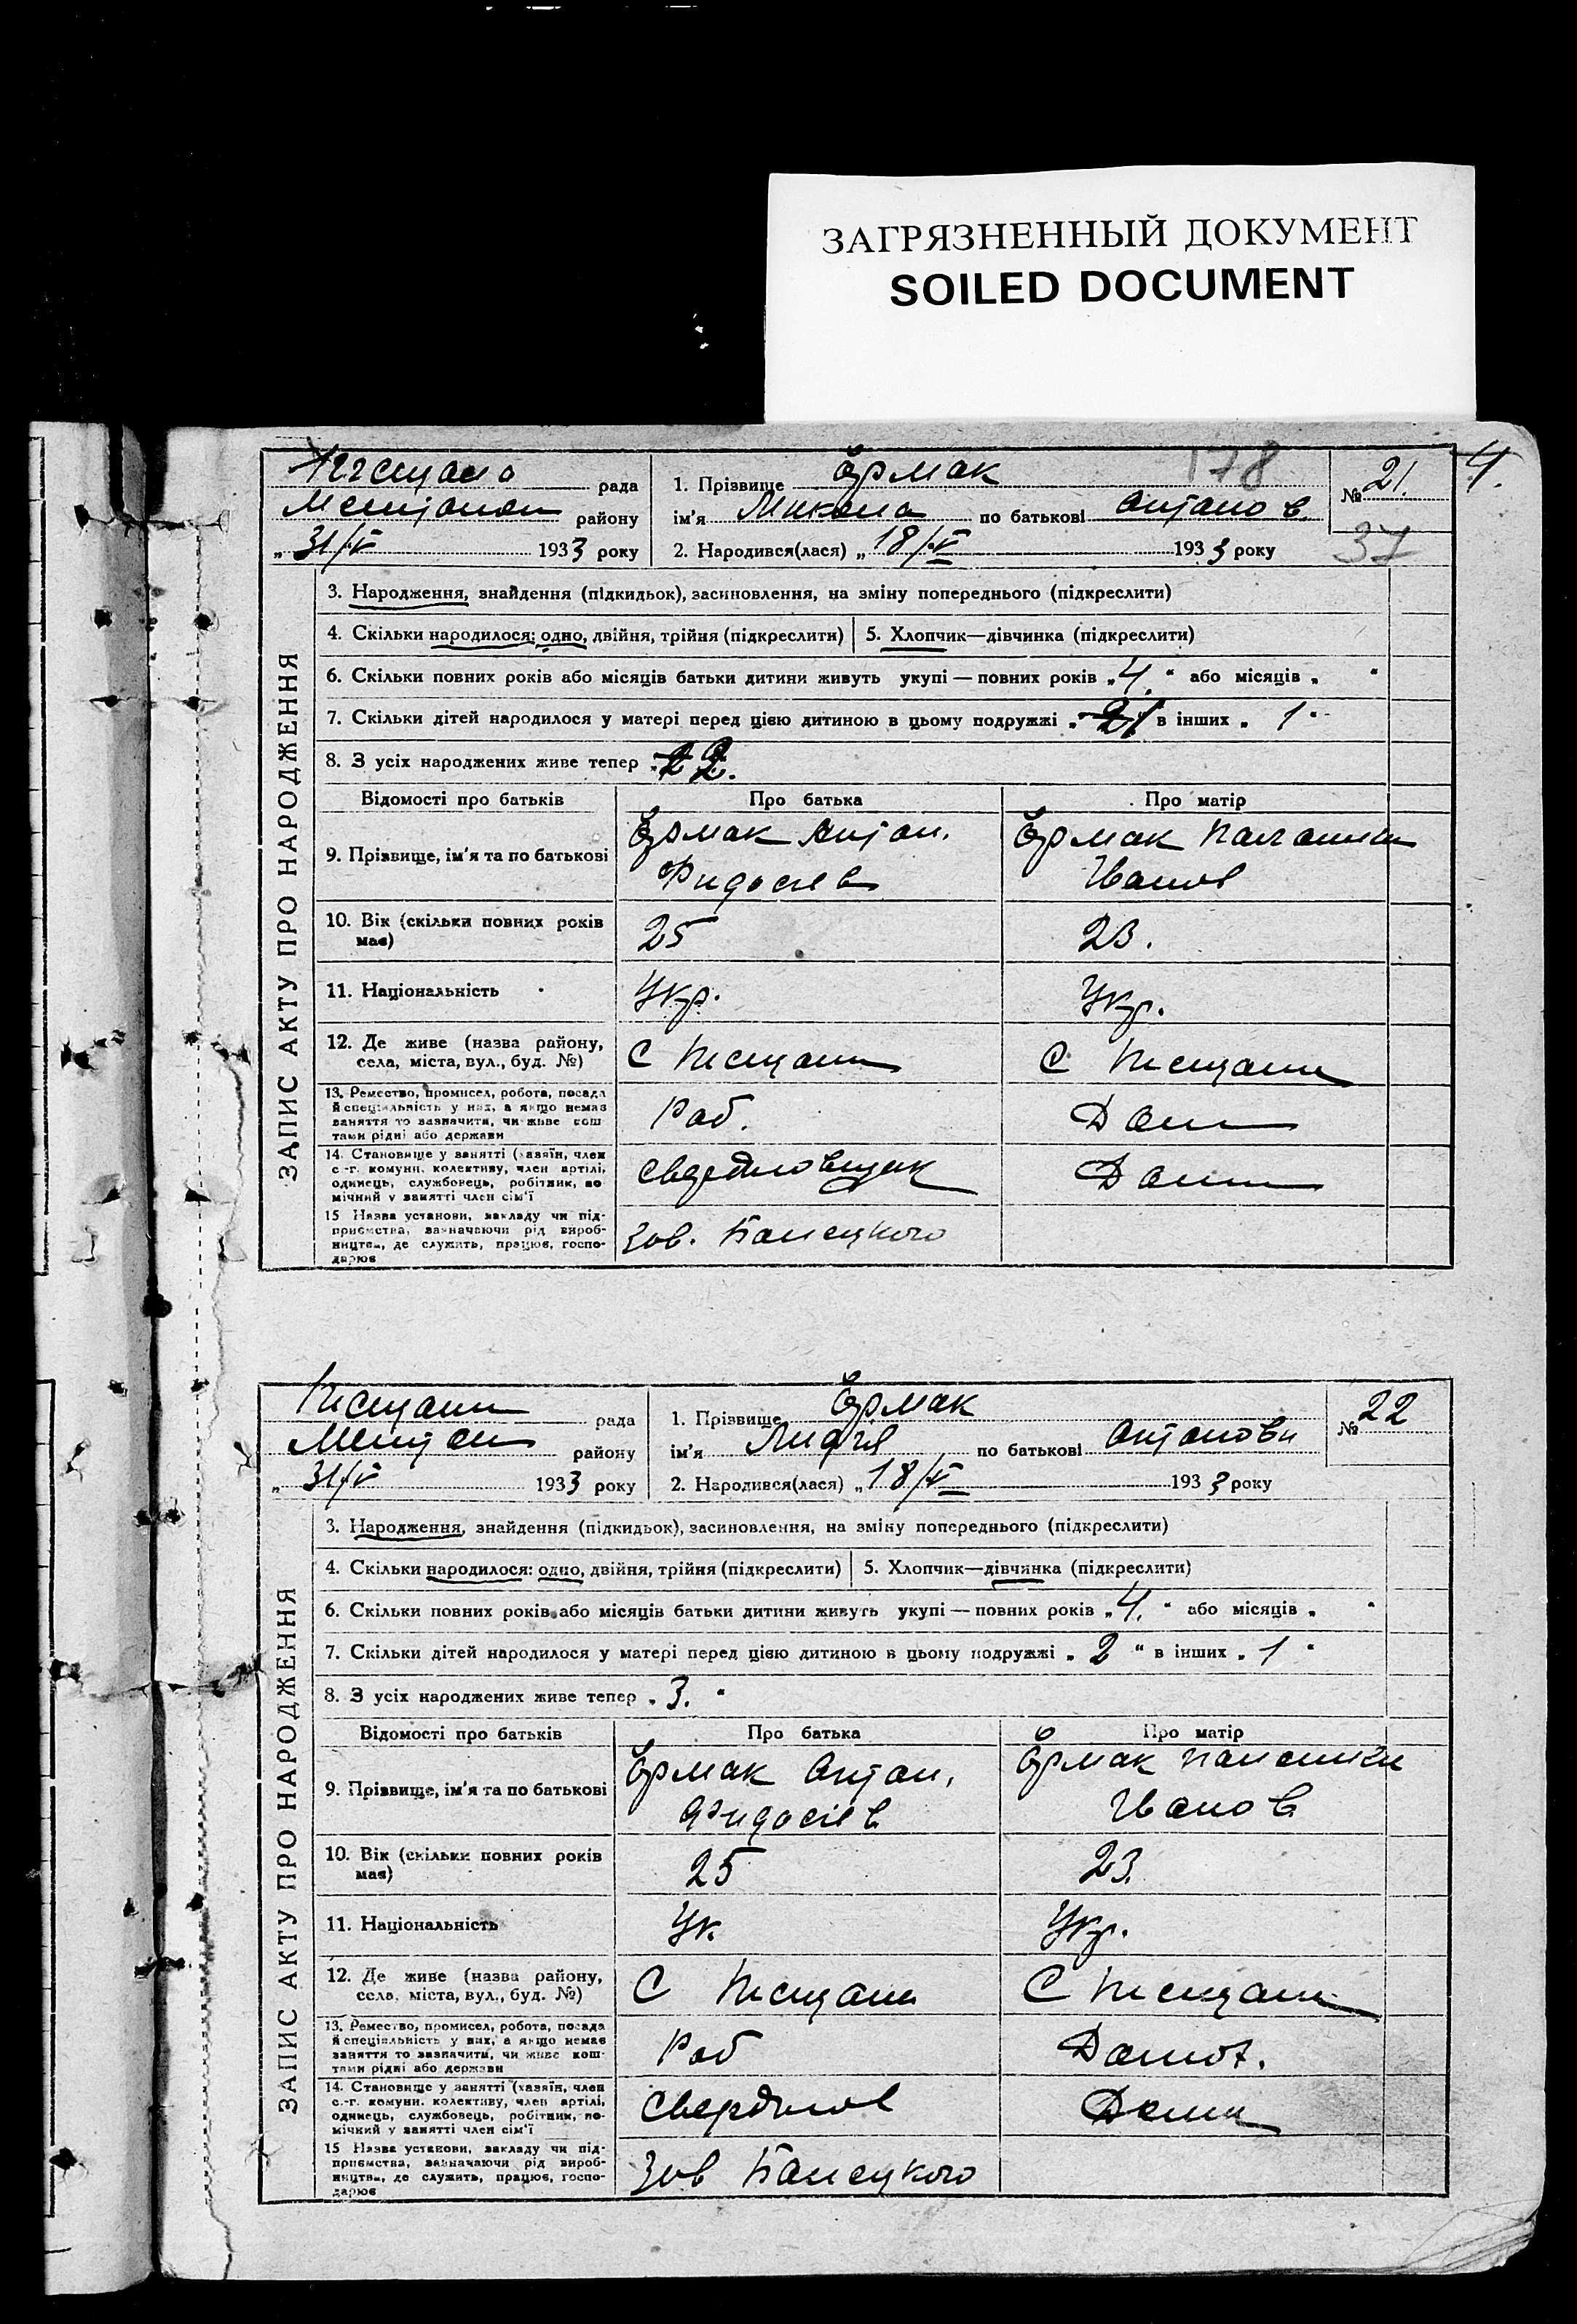 ЗАГРЯЗНЕННЫЙ ДОКУМЕНТ
SOILED DOCUMENT
4.
178
рада
району
„ 31/V 1933 року
1. Прізвище Єрмак
ім'я Микола по батькові Антонов
2. Народився(лася) „ 18/V 1933 року
№ 21.
37
ЗАПИС АКТУ ПРО НАРОДЖЕННЯ
3. Народження, знайдення (підкидьок), засиновлення, на зміну попереднього (підкреслити)
4. Скільки народилося: одно, двійня, трійня (підкреслити)
5. Хлопчик—дівчинка (підкреслити)
6. Скільки повних років або місяців батьки дитини живуть укупі — повних років „ 4. “ або місяців „ “
7. Скільки дітей народилося у матері перед цією дитиною в цьому подружжі „ в інших „ 1 “
8. З усіх народжених живе тепер 2.
Відомості про батьків
Про батька
Про матір
9. Прізвище, ім'я та по батькові
Єрмак Антон.
Фидосієв
Єрмак
Іванов
10. Вік (скільки повних років
має)
25
23.
11. Національність
Укр.
Укр.
12. Де живе (назва району,
села, міста, вул., буд. №)
С Пісчани
С Пісчани
13. Ремество, промисел, робота, посада
й спеціяльність у них, а якщо немає
заняття то зазначити, чи живе кош
тами рідні або держави
Роб.
Дом
14. Становище у занятті (хазяїн, член
с.-г. комуни, колективу, член артілі,
одинець, службовець, робітник, по
мічний у занятті член сім'ї
Дом
15 Назва установи, закладу чи під-
приємства, зазначаючи рід вироб-
ництва, де служить, працює, госпо-
дарює
Зав.
Пісчани рада
району
„ 31/V 1933 року
1. Прізвище Єрмак
ім'я Лидія по батькові Антонови
2. Народився(лася) „ 18/V 1933 року
№ 22
ЗАПИС АКТУ ПРО НАРОДЖЕННЯ
3. Народження, знайдення (підкидьок), засиновлення, на зміну попереднього (підкреслити)
4. Скільки народилося: одно, двійня, трійня (підкреслити)
5. Хлопчик—дівчинка (підкреслити)
6. Скільки повних років або місяців батьки дитини живуть укупі — повних років „ 4. “ або місяців „ “
7. Скільки дітей народилося у матері перед цією дитиною в цьому подружжі „ 2 “ в інших „ 1 “
8. З усіх народжених живе тепер „ 3. “
Відомості про батьків
Про батька
Про матір
9. Прізвище, ім'я та по батькові
Єрмак Антон,
Фидосієв
Єрмак
Іванов
10. Вік (скільки повних років
має)
25
23.
11. Національність
Ук.
Укр.
12. Де живе (назва району,
села, міста, вул., буд. №)
С Пісчани
С Пісчани
13. Ремество, промисел, робота, посада
й спеціяльність у них, а якщо немає
заняття то зазначити, чи живе кош-
тами рідні або держави
Роб
14. Становище у занятті (хазяїн, член
с.-г. комуни, колективу, член артілі,
одинець, службовець, робітник, по-
мічний у занятті член сім'ї
Свердлов
15 Назва установи, закладу чи під-
приємства, зазначаючи рід вироб-
ництва, де служить, працює, госпо-
дарює
Зав